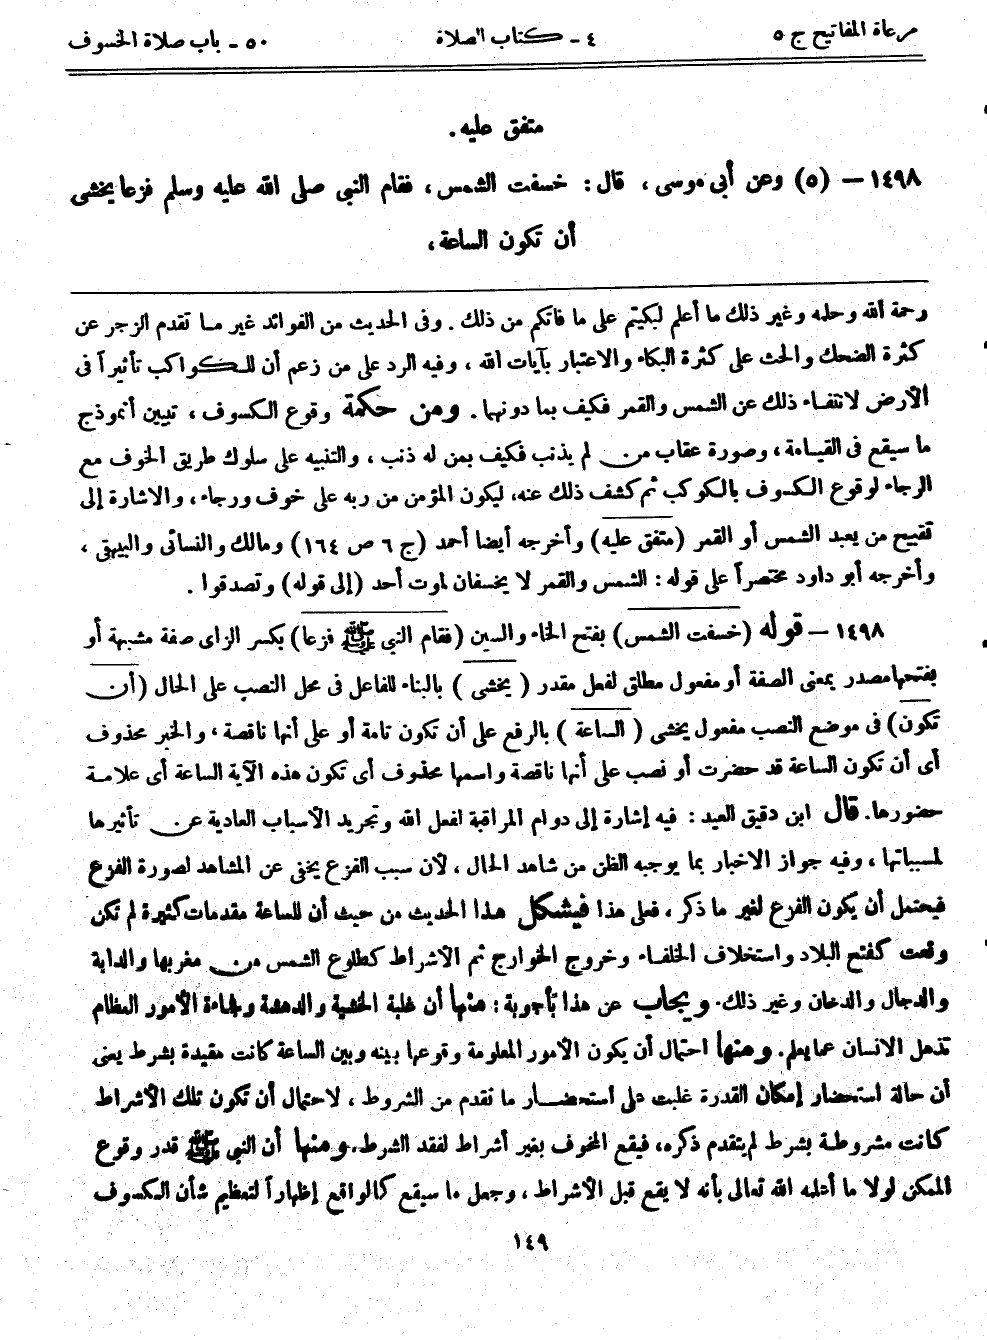 مرعاة المفاتيح ج ٥
٤ – كتاب الصلاة
٥٠ – باب صلاة الخسوف
متفق عليه.
١٤٩٨ – (٥) وعن أبى موسى، قال: خسفت الشمس، فقام النبى صلى الله عليه وسلم فزعا يخشى
أن تكون الساعة،
رحمة الله وحلمه وغير ذلك ما أعلم لبكيتم على ما فاتكم من ذلك. وفى الحديث من الفوائد غير مـا تقدم الزجر عن
كثرة الضحك والحث على كثرة البكاء والاعتبار بآيات الله، وفيه الرد على من زعم أن للـكواكب تأثيراً فى
الأرض لانتفـاء ذلك عن الشمس والقمر فكيف بما دونهما. ومن حكمة وقوع الـكسوف، تبيين أنموذج
ما سيقع فى القيـامة، وصورة عقاب من لم يذنب فكيف بمن له ذنب، والتنبيه على سلوك طريق الخوف مع
الرجاء لوقوع الـكسوف بالكوكب ثم كشف ذلك عنه، ليكون المؤمن من ربه على خوف ورجاء، والاشارة إلى
تقبيح من يعبد الشمس أو القمر (متفق عليه) وأخرجه أيضا أحمد (ج ٦ ص ١٦٤) ومالك والنسائى والبيهقى،
وأخرجه أبو داود مختصراً على قوله: الشمس والقمر لا يخسفان لموت أحد (إلى قوله) وتصدقوا.
١٤٩٨ – قوله (خسفت الشمس) بفتح الخاء والسين (فقام النبى ﷺ فزعا) بكسر الزاى صفة مشبهة أو
بفتحها مصدر بمعنى الصفة أو مفعول مطلق لفعل مقدر (يخشى) بالبناء للفاعل فى محل النصب على الحال (أن
تكون) فى موضع النصب مفعول يخشى (الساعة) بالرفع على أن تكون تامة أو على أنها ناقصة، والخبر محذوف
أى أن تكون الساعة قد حضرت أو نصب على أنها ناقصة واسمها محذوف أى تكون هذه الآية الساعة أى علامـة
حضورها. قال ابن دقيق العيد: فيه إشارة إلى دوام المراقبة لفعل الله وتجريد الأسباب العادية عن تأثيرها
لمسبباتها، وفيه جواز الاخبار بما يوجبه الظن من شاهد الحال، لأن سبب الفزع يخفى عن المشاهد لصورة الفزع
فيحتمل أن يكون الفزع لغير ما ذكر، فعلى هذا فيشكل هـذا الحديث من حيث أن للساعة مقدمات كثيرة لم تكن
وقعت كفتح البلاد واستخلاف الخلفـاء وخروج الخوارج ثم الأشراط كطلوع الشمس من مغربها والدابة
والدجال والدخان وغير ذلك. ويجاب عن هذا بأجوبة: منها أن غلبة الخشية والدهشة وفجاءة الأمور العظام
تذهل الانسان عما يعلم. ومنها احتمال أن يكون الأمور المعلومة وقوعها بينه وبين الساعة كانت مقيدة بشرط يعنى
أن حالة استحضار إمكان القدرة غلبت على استحضـار ما تقدم من الشروط، لاحتمال أن تكون تلك الأشراط
كانت مشروطـة بشرط لم يتقدم ذكره، فيقع المخوف بغير أشراط لفقد الشرط. ومنها أن النبى ﷺ قدر وقوع
الممكن لولا ما أعلمه الله تعالى بأنه لا يقع قبل الأشراط، وجعل ما سيقع كالواقع إظهاراً لتعظيم شأن الـكسوف
١٤٩